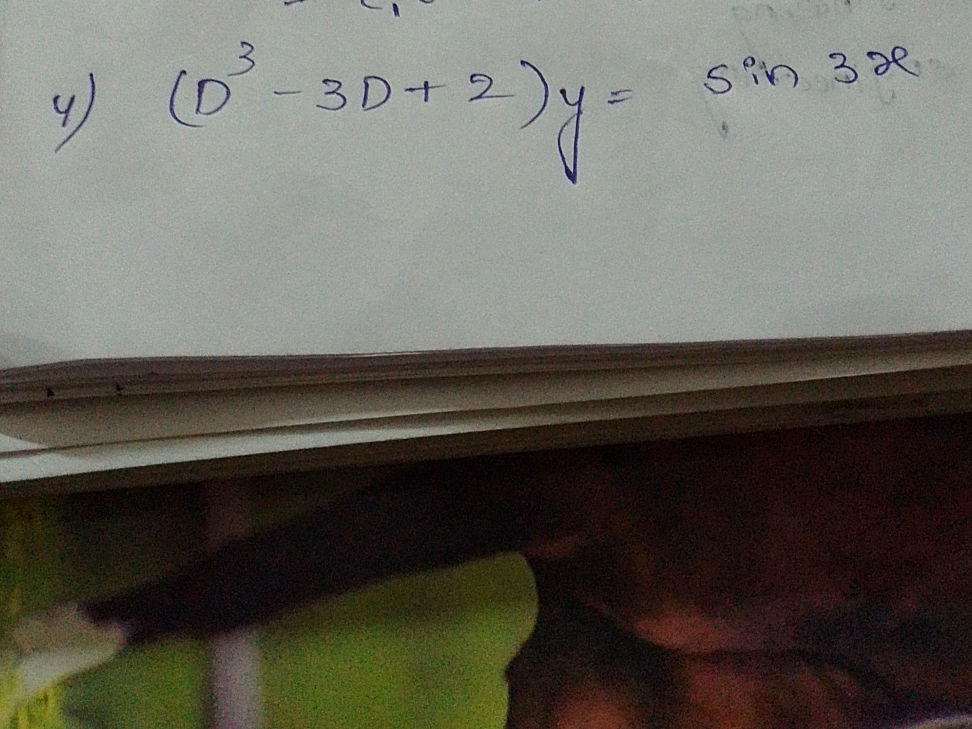 4) (D³ - 3D + 2)y = sin 3x